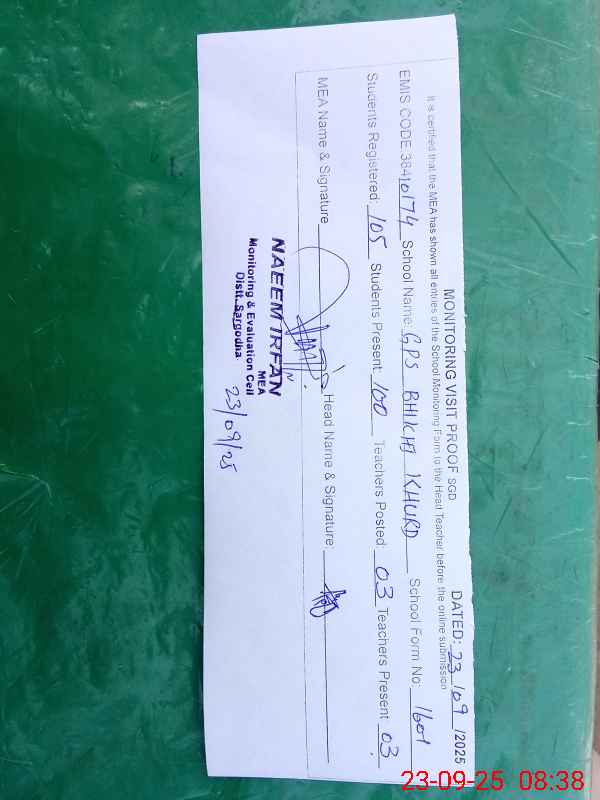 MONITORING VISIT PROOF SGD DATED: 23/09/2025
It is certified that the MEA has shown all entries of the School Monitoring Form to the Head Teacher before the online submission
EMIS CODE 38410174 School Name: GPS BHIKHI KHURD School Form No: 1601
Students Registered: 105 Students Present: 100 Teachers Posted: 03 Teachers Present: 03
MEA Name & Signature Head Name & Signature:
NAEEM IRFAN
MEA
Monitoring & Evaluation Cell
Distt. Sargodha
23/09/25
23-09-25 08:38